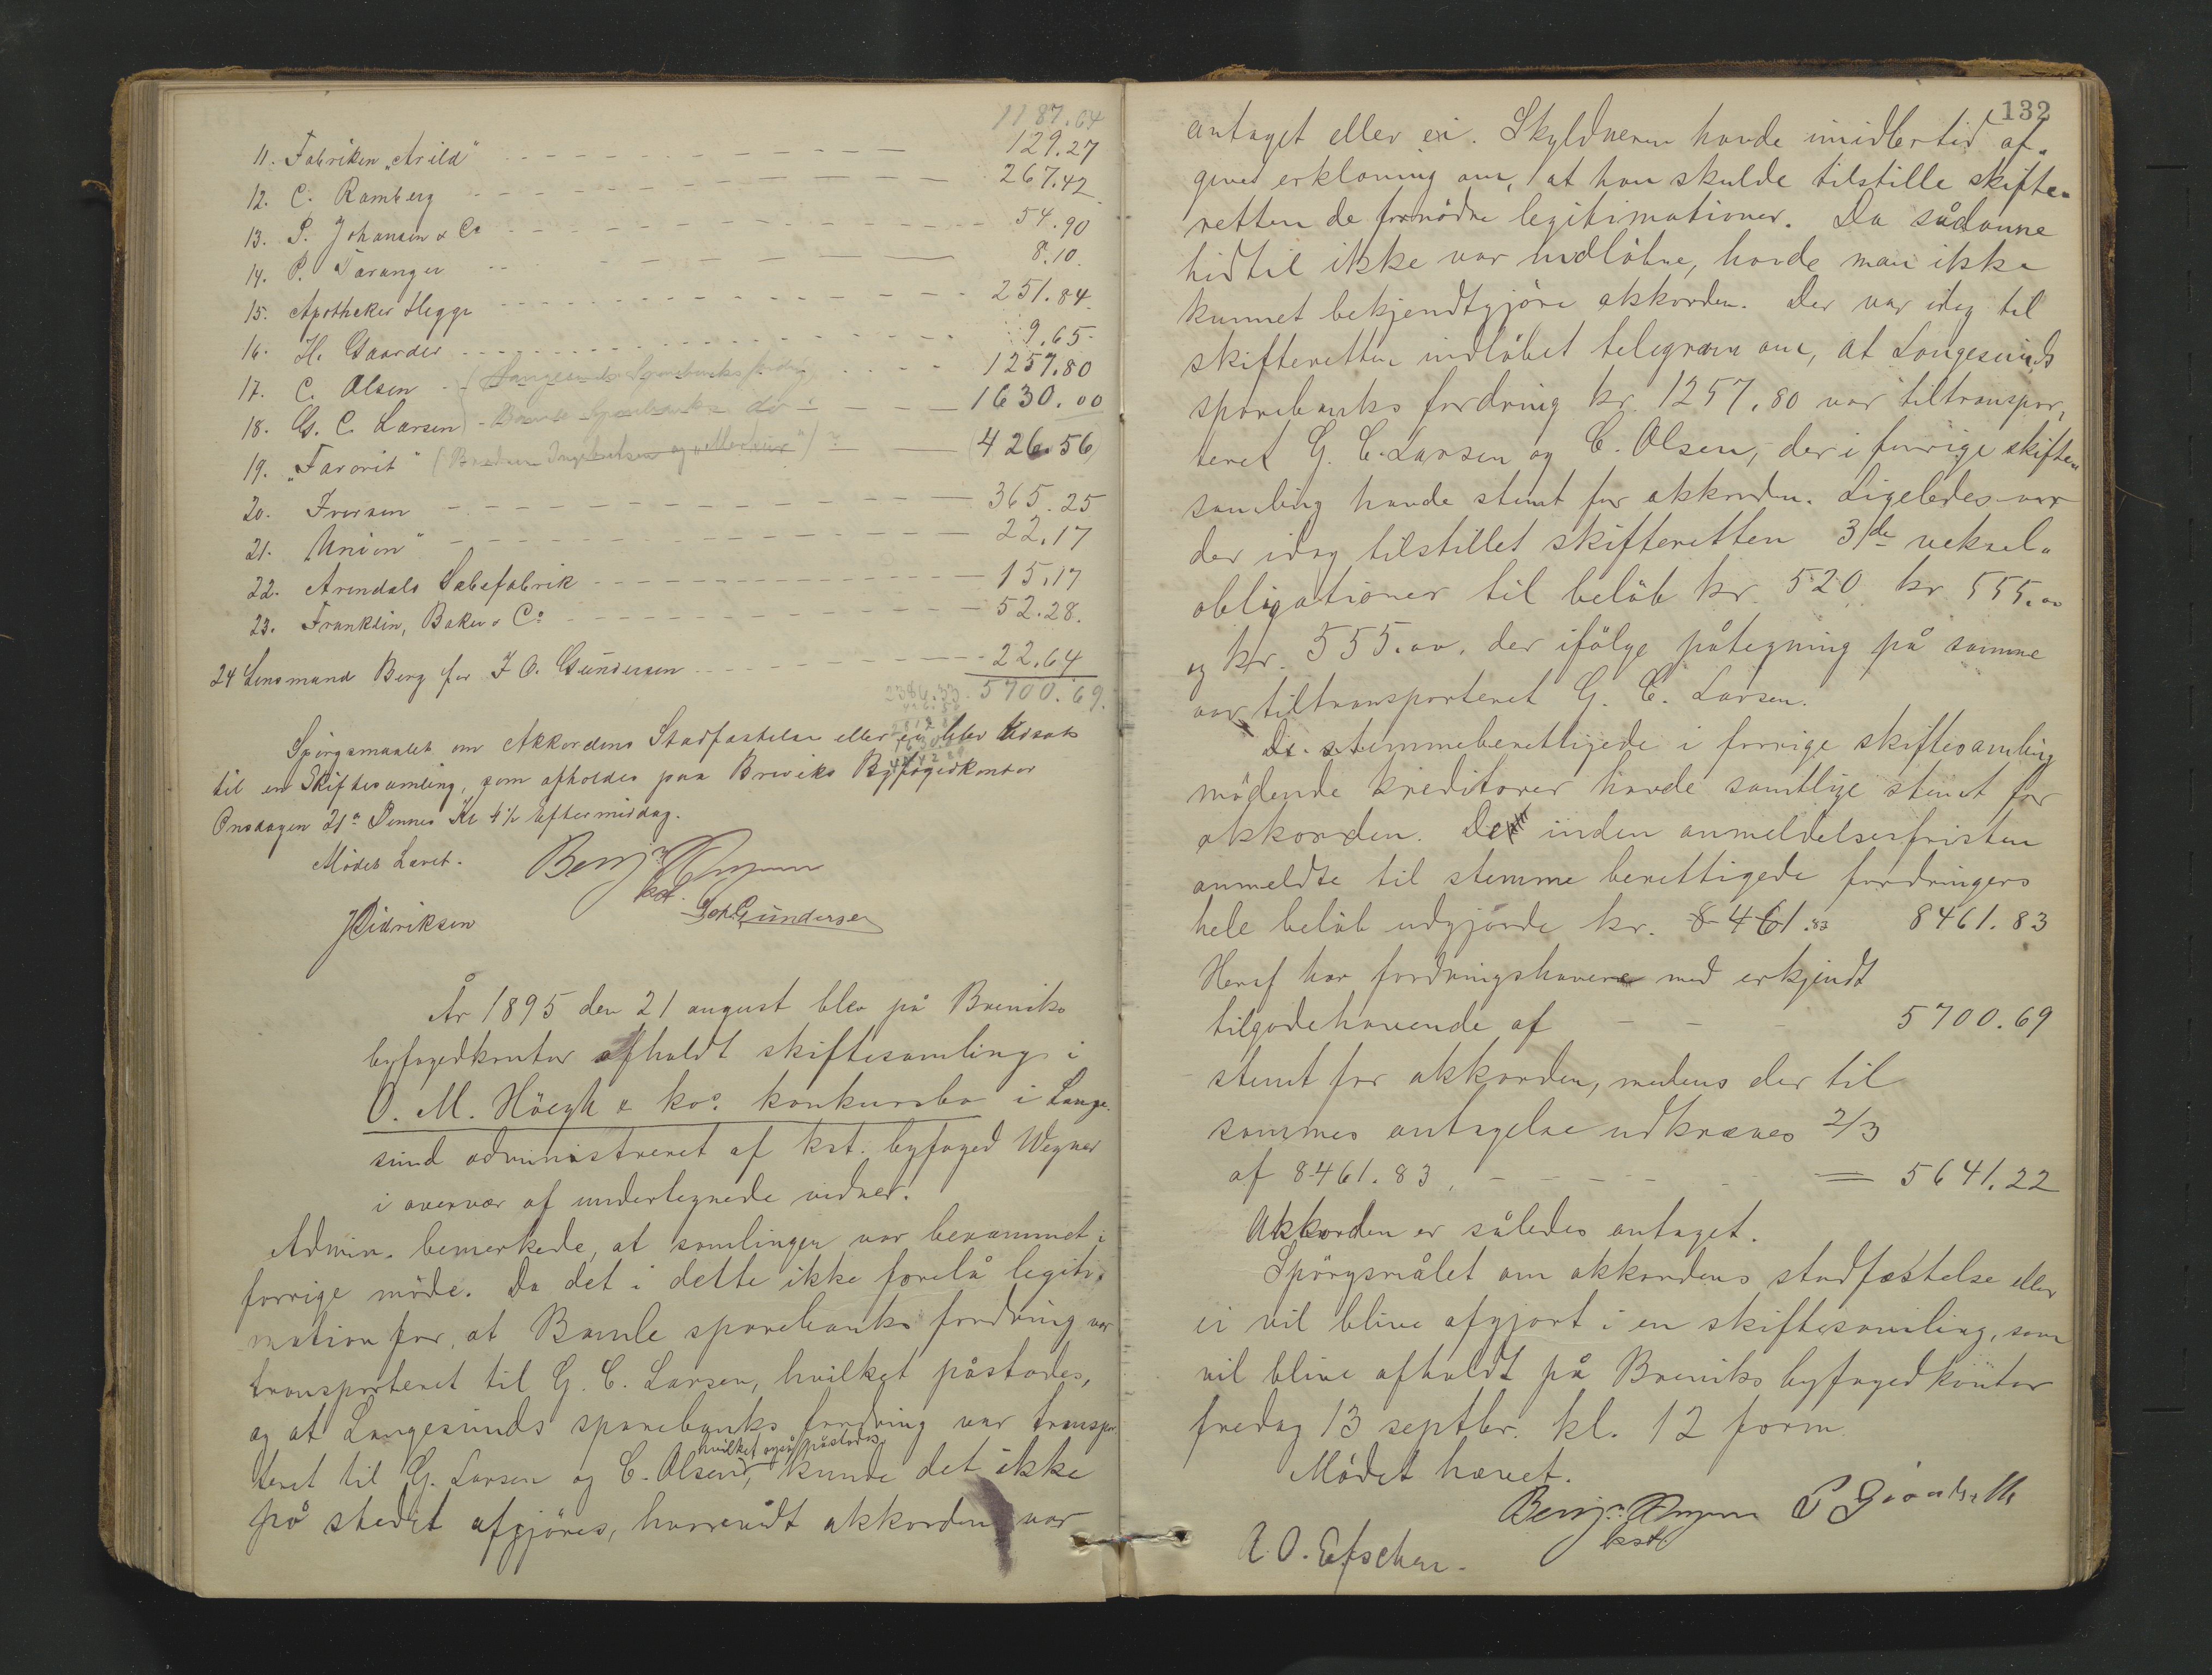 1187.64
11. Fabriken „Arild" 129.27
12. C. Ramberg 267.42
13. P. Johansen & Co 54.90
14. P. Taranger 8.10
15. Apotheker Hegge 251.84
16. H. Gaarder 9.65
17. C. Olsen (Langesunds Sparebanks fordring 1257.80
18. G. C. Larsen) Bamle Sparebanks do 1630.00
19. „Favorit" (Brødrene Ingebretsen og 426.56
20. Iversen 365.25
21. Union" 22.17
22. Arendals Sæbefabrik 15.17
23. Franklin, Baker & Co 52.28.
24 Lensmand Berg for J O. Gundersen 22.64
2386.33. 5700.69.
Spørgsmaalet om Akkordens Stadfæstelse eller ei blev udsat
til en Skiftesamling, som afholdes paa Breviks Byfogedkontor
Onsdagen 21de Dennes Kl 4½ Eftermiddag.
Mødet hævet.
Benj. Wegner
kst.
J Didriksen
Joh. Gundersen
År 1895 den 21 august blev på Breviks
byfogedkontor afholdt skiftesamling i
O. M. Höegh & kos. konkursbo i Lange-
sund administreret af kst. byfoged Wegner
i overvær af undertegnede vidner.
Admin. bemerkede, at samlingen var berammet i
forrige møde. Da det i dette ikke forelå legiti-
mation for, at Bamle sparebanks fordring var
transporteret til G. C. Larsen, hvilket påstodes,
og at Langesunds sparebanks fordring var transpor
hvilket også påstodes
teret til G. Larsen og C. Olsen, kunde det ikke
på stedet afgjöres, hvorvidt akkorden var
132
antaget eller ei. Skyldneren havde imidlertid af-
givet erklæring om, at han skulde tilstille skifte-
retten de fornödne legitimationer. Da sådanne
hidtil ikke var indløbne, havde man ikke
kunnet bekjendtgjöre akkorden. Der var idag til
skifteretten indløbet telegram om, at Langesunds
sparebanks fordring kr. 1257.80 var tiltranspor-
teret G. C. Larsen og C. Olsen, der i forrige skifte-
samling havde stemt for akkorden. Ligeledes var
der idag tilstillet skifteretten 3de veksel-
obligationer til beløb kr. 520 kr 555.00
og kr. 555.00, der ifölge påtegning på samme
var tiltransporteret G. C. Larsen.
De stemmeberettigede i forrige skiftesamling
mödende kreditorer havde samtlige stemt for
akkorden. De inden anmeldelsesfristen
anmeldte til stemme berettigede fordringers
hele beløb udgjorde kr. 8461.83 8461.83
Heraf har fordringshavere med erkjendt
tilgodehavende af 5700.69
stemt for akkorden, medens der til
sammes antagelse udkræves 2/3
af 8461.83, = 5641.22
Akkorden er således antaget.
Spörgsmålet om akkordens stadfæstelse eller
ei vil blive afgjort i en skiftesamling, som
vil blive afholdt på Breviks byfogedkontor
fredag 13 septbr. kl. 12 form
Mödet hævet.
Benj. Wegner
kst.